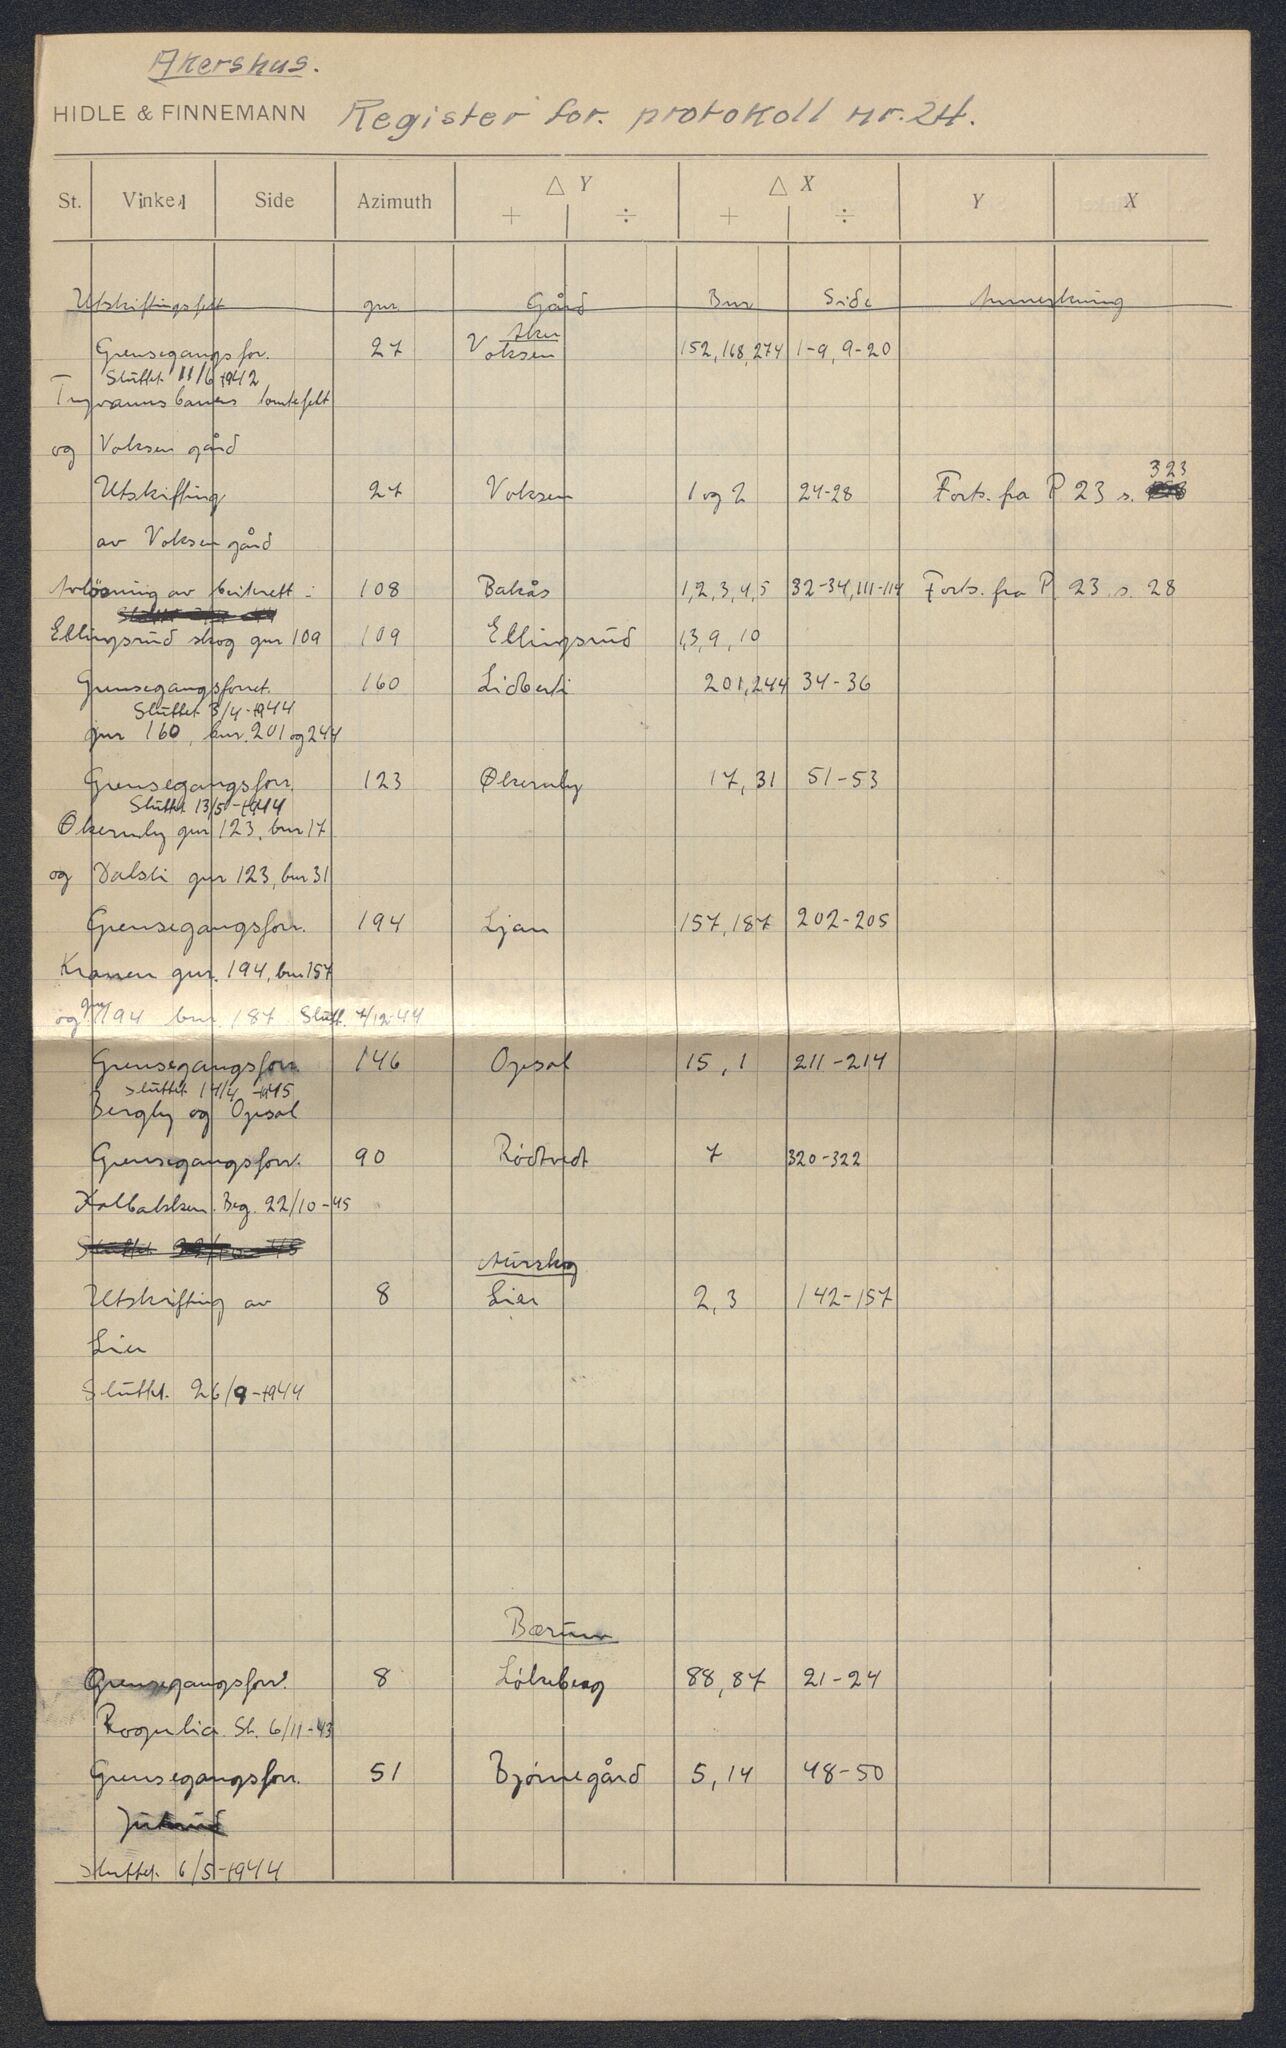 Akershus.
HIDLE & FINNEMANN Register for. protokoll nr. 24.
St. Vinkel Side Azimuth △ Y △ X Y X
+ ÷ + ÷
Utskiftingsfelt gnr Gård Bnr Side Anmerkning
Aker
Grensegangsfor. 27 Voksen 152, 168, 274 1-9, 9-20
Sluttet 11/6-1942
Tryvannsbanens tomtefelt
og Voksen gård
323
Utskifting 27 Voksen 1 og 2 24-28 Forts. fra P 23 s.
av Voksen gård
Avløsning av beiterett i 108 Bakås 1, 2, 3, 4, 5 32-34, 111-114 Forts. fra P. 23 s. 28
Ellingsrud skog gnr 109 109 Ellingsrud 1, 3, 9, 10
Grensegangsforret. 160 201, 244 34-36
Sluttet 3/4-1944
gnr 160, bnr. 201 og 244
Grensegangsforr. 123 Økernby 17, 31 51-53
Sluttet 13/5-1944
Økernby gnr 123, bnr 17
og Dalsli gnr 123, bnr 31
Grensegangsforr. 194 Ljan 157, 187 202-205
gnr. 194, bnr 157
og gnr 194 bnr. 187 Slutt. 7/12-44
Grensegangsforr. 146 Opsal 15, 1 211-214
Sluttet 14/4-1945
Bergly og Opsal
Grensegangsforr. 90 Rødtvedt 7 320-322
Kalbakken. Beg. 22/10-45
Aurskog
Utskifting av 8 Lier 2, 3 142-157
Lier
Sluttet. 26/9-1944
Bærum
Grensegangsforr. 8 Løkeberg 88, 87 21-24
Rogulia. Sl. 6/11-43
Grensegangsforr. 51 Bjørnegård 5, 14 48-50
Sluttet. 6/5-1944